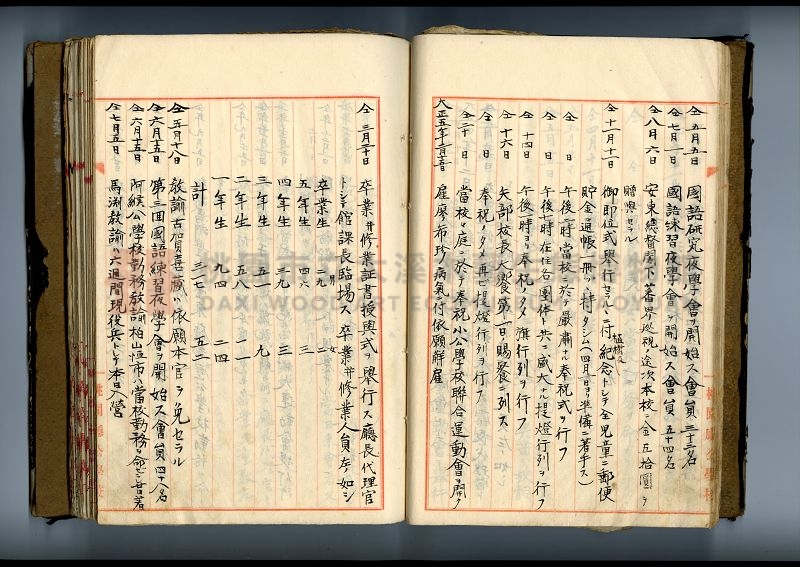 仝 五月五日 國語研究夜學會ヲ開始ス會員三十三名
仝 七月一日 國語練習夜學會ヲ開始ス會員五十四名
仝 八月六日 安東總督閣下蕃界巡視ノ途次本校ニ金五拾圓ヲ
贈與セラル
仝 十一月十日 御即位式舉行セラルヽニ付紀念トシテ全兒童ニ郵便
貯金通帳一冊ヅヽ持タシム(四月八日ヨリ準備ニ著手ス)
仝 日 午後一時當校ニ於テ嚴肅ナル奉祝式ヲ行フ
仝 日 午後一時在住各團體ト共ニ盛大ナル提燈行列ヲ行フ
仝 十四日 午後一時ヨリ奉祝ノタメ旗行列ヲ行フ
仝 十六日 矢部校長大饗第一日ノ賜饗ニ列ス
仝 日 奉祝ノタメ再ビ提燈行列ヲ行フ
仝 二十日 當校々庭ニ於テ奉祝小公學校聯合運動會ヲ開ク
大正五年 雇廖希珍病氣ニ付依願解雇
仝 三月二十日 卒業并修業証書授與式ヲ舉行ス廳長代理官
トシテ館課長臨場ス卒業并修業人員左ノ如シ
男 女
卒業生 二九 二
五年生 四六 三
四年生 三九 三
三年生 五一 九
二年生 五八 一一
一年生 九四 二四
計 三一七 五二
仝 五月十八日 教諭古賀喜藏ハ依願本官ヲ免セラル
仝 六月十五日 第三回國語練習夜學會ヲ開始ス會員四十八名
仝 六月十五日 阿緱公學校勤務教諭柏山恒市ハ當校勤務ヲ命ゼ
仝 七月五日 馬渕教諭ハ六週間現役兵トシテ本日入營